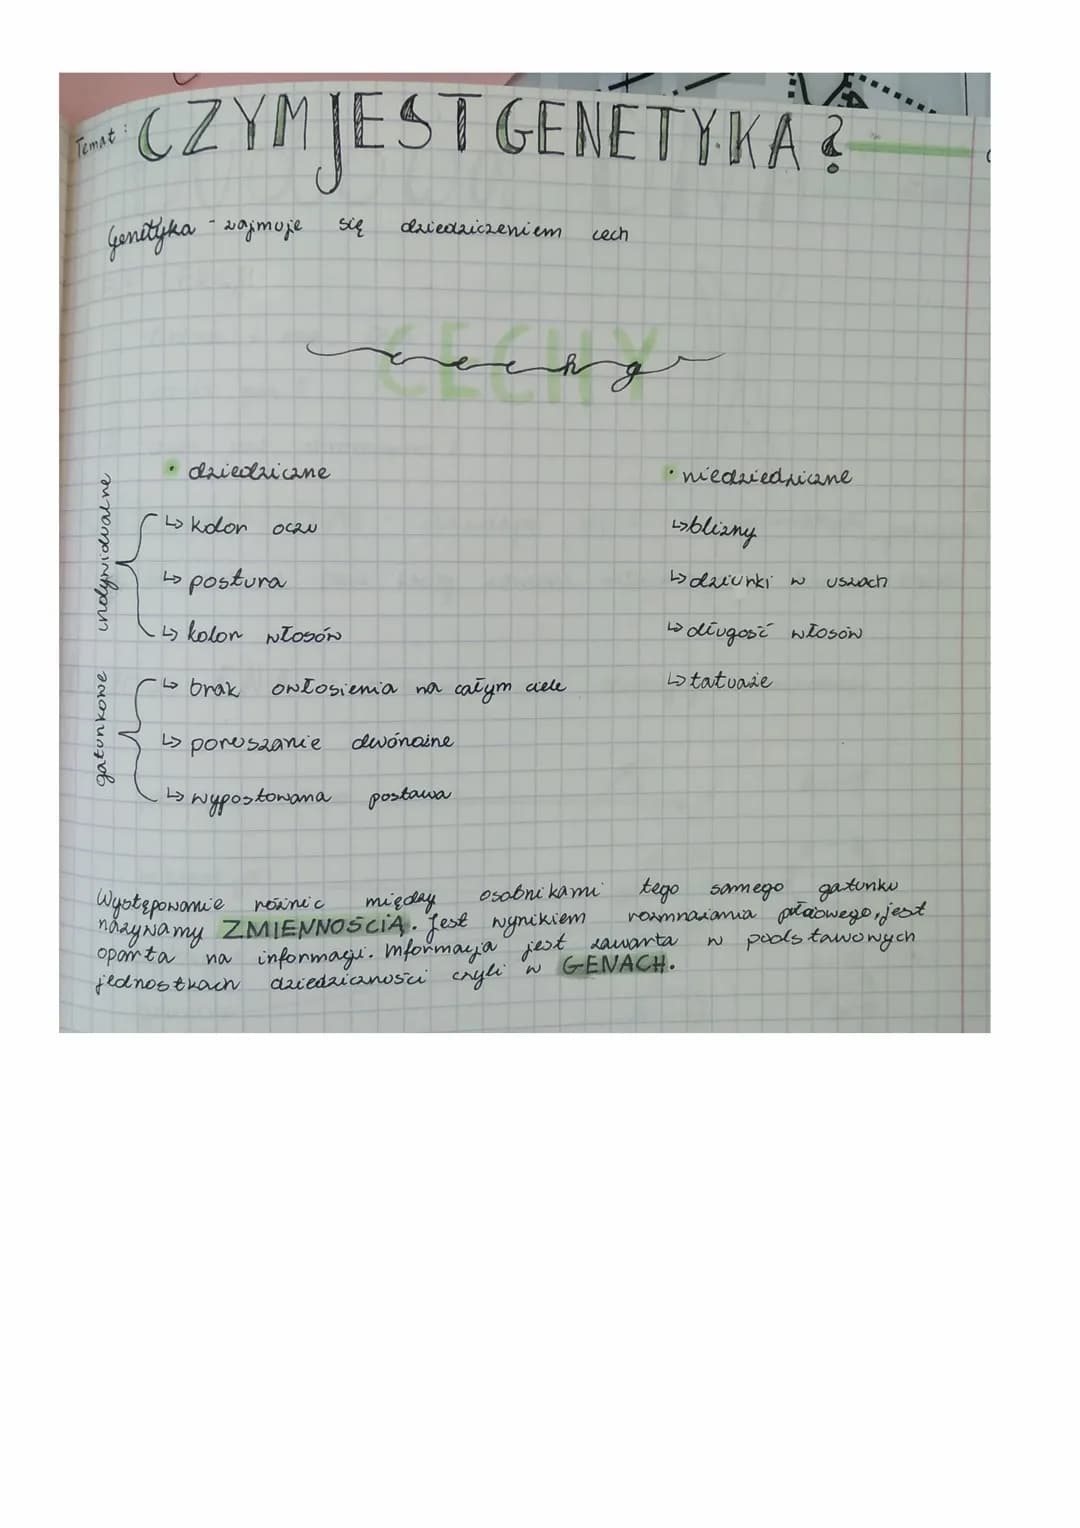 Temat: CZYM JEST GENETYKA?
Genetyka - zajmuje się dziedziczeniem cech
CECHY
cechy
indywidualne
• dziedziczne
↳ kolor oczu
↳ postura
↳ kolor włosów
gatunkowe
↳ brak owłosienia na całym ciele
↳ poruszanie dwónożne
↳ wypostowana postawa
• niedziedziczne
↳ blizny
↳ dziurki w uszach
↳ długość włosów
↳ tatuaże
Występowanie różnic między osobnikami tego samego gatunku
nazywamy ZMIENNOŚCIĄ. Jest wynikiem rozmnażania płciowego, jest
oparta na informacji. Informacja jest zawarta w podstawowych
jednostkach dziedziczności czyli w GENACH.